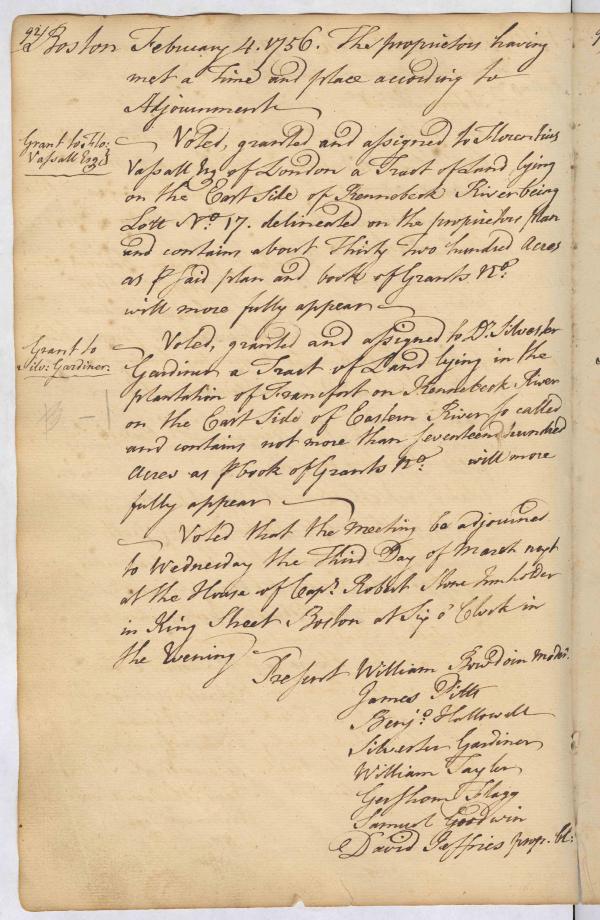 92
Boston February 4. 1756. The proprietors having
met a Time and place according to
Adjournment
Grant to Flo:
Vassall Esqr
Voted, granted and assigned to Florentius
Vassall Esq of London a Tract of Land lying
on the East Side of Kennebeck River being
Lott No. 17. delineated on the proprietors plan
and contains about Thirty Two hundred Acres
as ⅌ said plan and book of Grants No.
will more fully appear
Grant to
Silv: Gardiner.
Voted, granted and assigned to Dr. Silvester
Gardiner a Tract of Land lying in the
plantation of Francfort on Kennebeck River
on the East Side of Eastern River so called
and contains not more than seventeen hundred
Acres as ⅌ book of Grants No. will more
fully appear
Voted that the meeting be adjourned
to Wednesday the Third Day of March next
at the House of Capt. Robert Stone Innholder
in King Street Boston at Six o' Clock in
the Evening
Present William Bowdoin Moder.
James Pitts
Benj.o Hallowell
Silvester Gardiner
William Tayler
Gershom Flagg
Samuel Goodwin
David Jeffries prop. Cl: